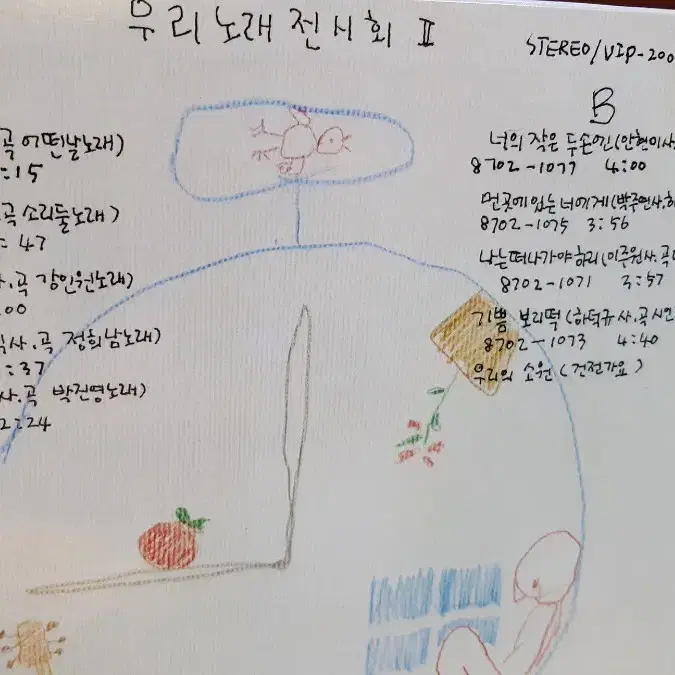 우리노래전시회 Ⅱ
STEREO/VIP-200
곡 어떤날노래)
:15
곡 소리둘노래)
: 47
사.곡 강인원노래)
:00
사.곡 정희남노래)
:37
사.곡 박진영노래)
2:24
B
너의 작은 두손엔(안현미사
8702-1077 4:00
먼곳에있는너에게(박주연사.하
8702-1075 3:56
나는떠나가야하리(이준원사.곡
8702-1071 3:57
기쁨 보리떡(하덕규사.곡시인
8702-1073 4:40
우리의 소원(건전가요)